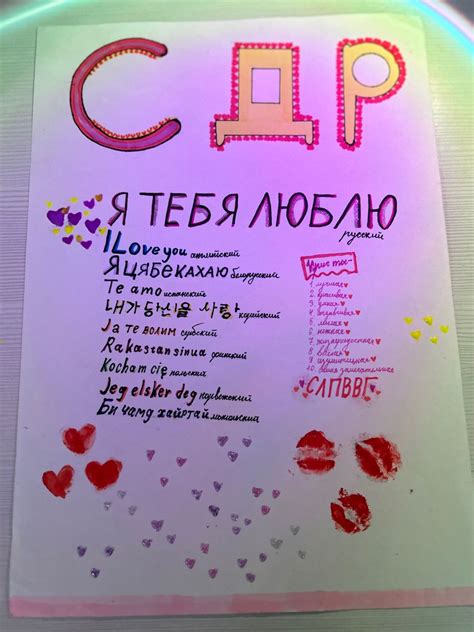 СДР
Я ТЕБЯ ЛЮБЛЮ русский
I Love you английский
Я ЦЯБЕ КАХАЮ белорусский
Te amo испанский
내가 당신을 사랑 корейский
Ја те волим сербский
Rakastan sinua финский
Kocham cię польский
Jeg elsker deg норвежский
Би чамд хайртай монгольский
ты-
1. лучшая
2. красивая
3.
4.
5. милая
6. нежная
7. жизнерадостная
8.
9. изумительная
10. самая замечательная
СЛПВВГ